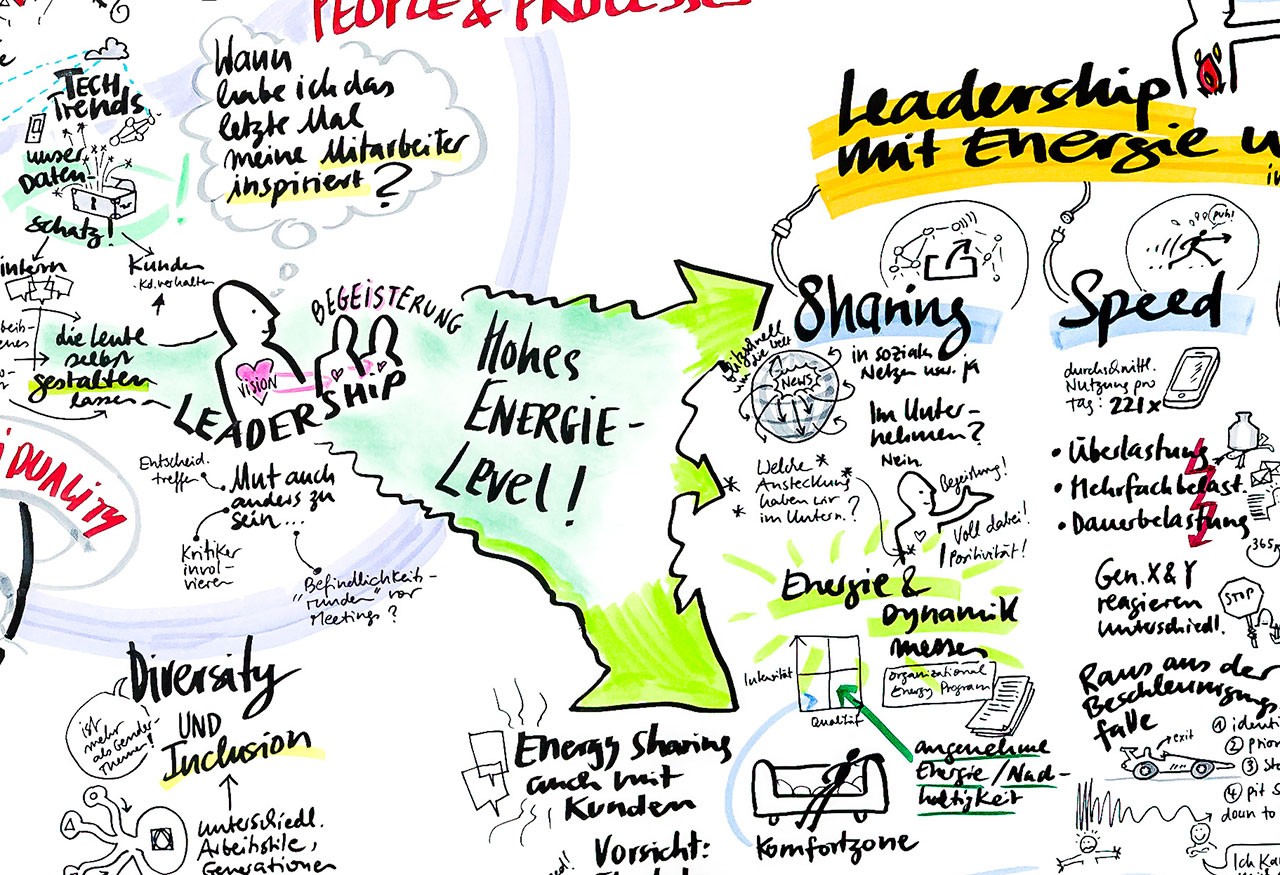 PEOPLE & PROCESSES
TECH
Trends
unser
Daten-
schatz!
intern
Kunden
Kd.verhalten
die Leute
selbst
gestalten
lassen
Wann
habe ich das
letzte Mal
meine Mitarbeiter
inspiriert?
BEGEISTERUNG
VISION
LEADERSHIP
Entscheid.
treffen
Mut auch
anders zu
sein...
Kritiker
invol-
vieren
"Befindlichkeit-
runden" vor
Meetings?
Hohes
ENERGIE-
Level!
Diversity
UND
Inclusion
ist
mehr
als Gender-
Thema!
unterschiedl.
Arbeitsstile,
Generationen
Energy Sharing
auch mit
Kunden
Vorsicht:
Leadership
mit Energie
Sharing
Blitzschnell
um die Welt
NEWS
in sozialen
Netzen usw. ja
Im Unter-
nehmen?
Nein.
Welche
Ansteckung
haben wir
im Untern.?
Begeisterung!
Voll dabei!
Positivität!
Energie &
Dynamik
messen
Intensität
Qualität
Organizational
Energy Program
angenehme
Energie/Nach-
haltigkeit
Komfortzone
Speed
puh!
durchschnittl.
Nutzung pro
Tag: 221x
• Überlastung
• Mehrfachbelast.
• Dauerbelastung
365
Gen. X & Y
reagieren
unterschiedl.
STOP
Raus aus der
Beschleunigungs
falle
exit
① identi
② prior
③
④ pit s
down to
Ich ka